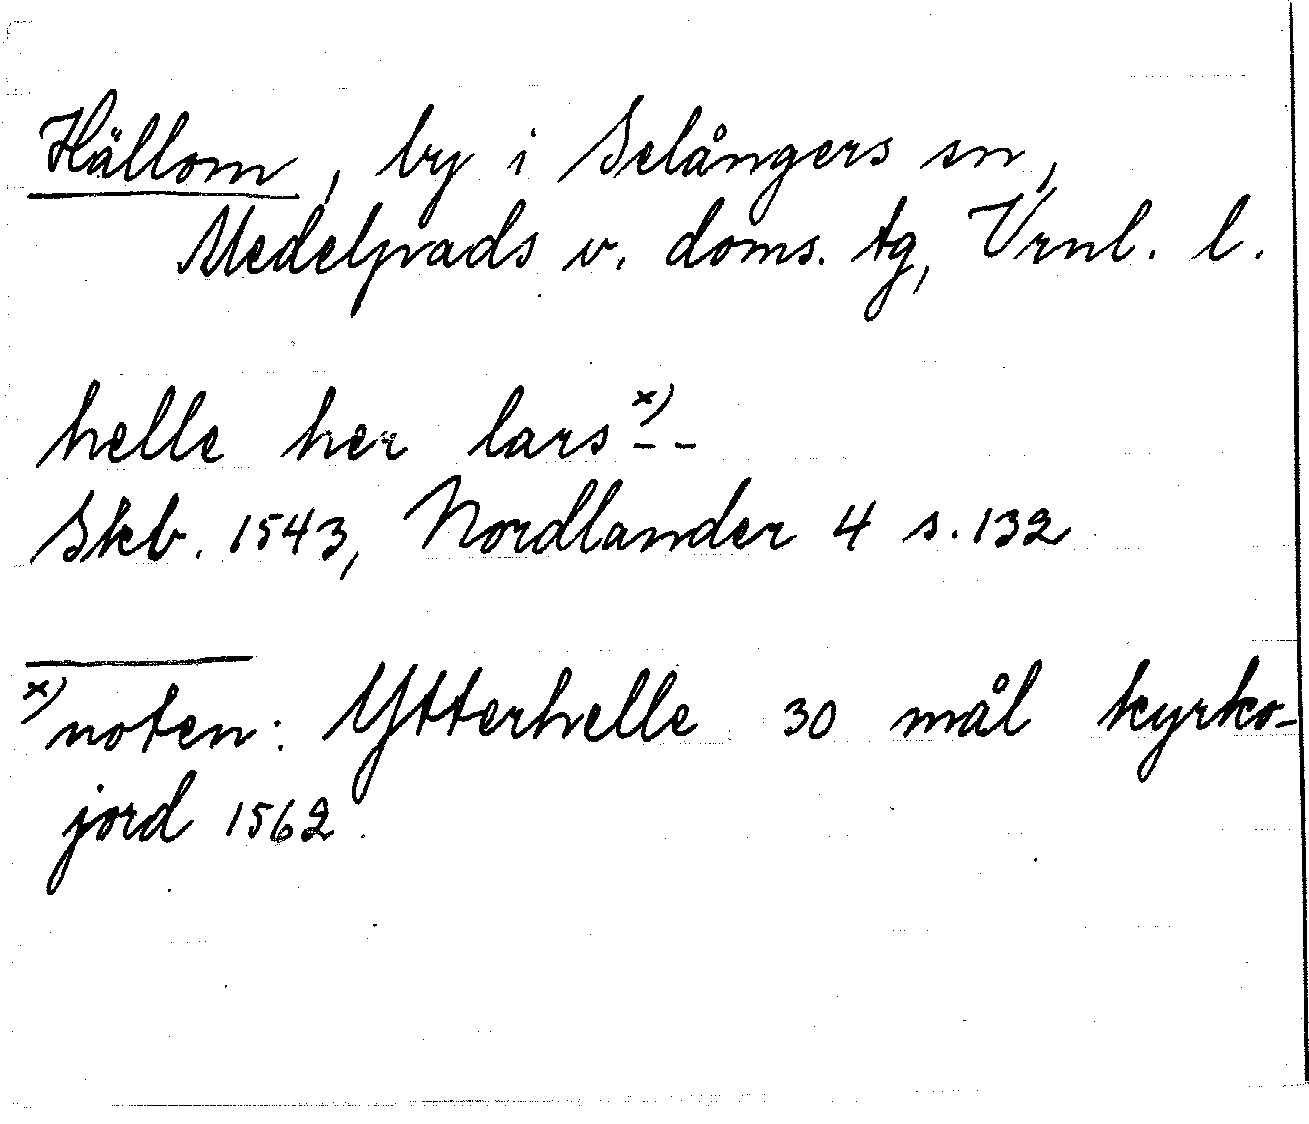 Hällom, by i Selångers sn,
Medelpads v. doms. tg, Vrnl. l.
helle her lars x) --
Skb. 1543, Nordlander 4 s. 132
x) noten: Ytterhelle 30 mål kyrko-
jord 1562.